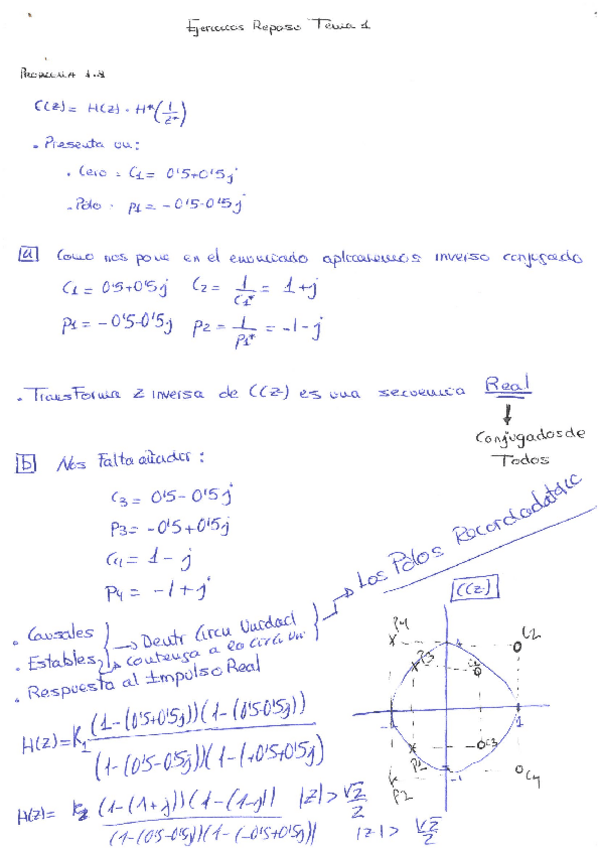 Ejercicios Reposo Tema 1
Problema 1.8
C(z) = H(z) · H*(1/z*)
· Presenta un:
· Cero = C1 = 0'5+0'5j
· Polo · P1 = -0'5-0'5j
a Como nos pone en el enunciado aplicaremos inverso conjugado
C1 = 0'5+0'5j C2 = 1/C1* = 1+j
P1 = -0'5-0'5j P2 = 1/P1* = -1-j
· Transforma z inversa de C(z) es una secuencia Real
Conjugados de
Todos
b Nos Falta añadir:
C3 = 0'5-0'5j
P3 = -0'5+0'5j
C4 = 1-j
P4 = -1+j
Los Polos
C(z)
· Causales → Dentr Circu Unidad
· Estables → contenga a la circ un
· Respuesta al Impulso Real
P4
P3
C2
1
C3
P2
P2
-1
C4
H(z) = K1 (1-(0'5+0'5j))(1-(0'5-0'5j)) / (1-(0'5-0'5j))(1-(+0'5+0'5j))
H(z) = K2 (1-(1+j))(1-(1-j)) / (1-(0'5-0'5j))(1-(-0'5+0'5j)) |z| > √2/2
|z| > √2/2